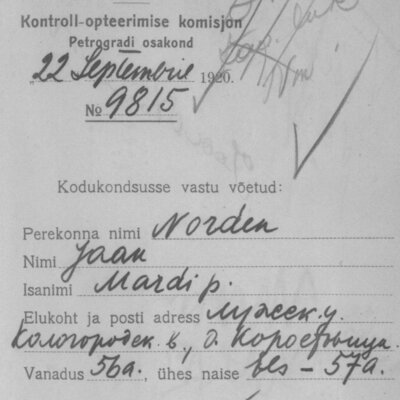 Kontroll-opteerimise komisjon
Petrogradi osakond
22 Septembril 1920.
№ 9815
Kodukondsusse vastu võetud:
Perekonna nimi Norden
Nimi Jaan
Isanimi Mardi p.
Elukoht ja posti adress Лужск. у.
Кологородск. в., д. Коростовица
Vanadus 56 a., ühes naise – 57 a.